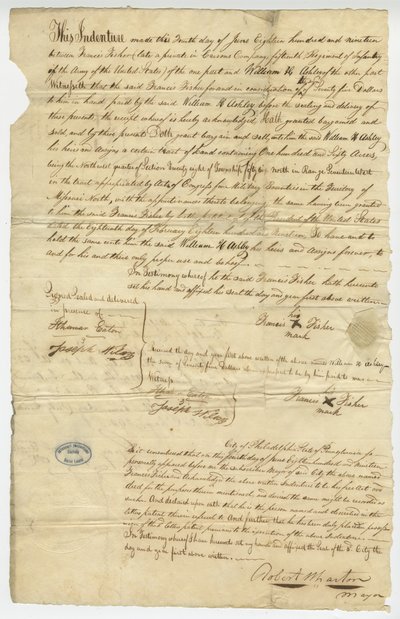 This Indenture made this Fourth day of June Eighteen hundred and nineteen
between Francis Fisher (late a private in Carsons Company, fifteenth Regiment of Infantry
of the Army of the United States) of the one part and William H Ashley of the other part
Witnesseth that the said Francis Fisher for and in consideration of Twenty five Dollars
to him in hand paid by the said William H Ashley before the sealing and delivery of
these presents the receipt whereof is hereby acknowledged Hath granted bargained and
sold, and by these presents Doth grant bargain and sell unto him the said William H Ashley
his heirs and assigns a certain tract of Land containing One hundred and Sixty Acres,
being the Northwest quarter of Section Twenty eight of Township fifty six North in Range Fourteen West
in the tract appropriated by acts of Congress for Military Bounties in the Territory of
Missouri North, with the appurtenances thereto belonging, the same having been granted
to him the said Francis Fisher by of the United States
dated the eighteenth day of February Eighteen hundred and Nineteen To have and to
hold the same unto him the said William H Ashley his heirs and assigns forever, to
and for his and their only proper use and behoof
In Testimony whereof he the said Francis Fisher hath hereunto
set his hand and affixed his seal the day and year first above written
Signed Sealed and delivered
in presence of
Joseph Wilson
his
Francis X Fisher
mark
Received the day and year first above written of the above named William H Ashley
the sum of Twenty five Dollars
Witness
Joseph Wilson
Francis X Fisher
mark
City of Philadelphia State of Pennsylvania ss
Be it remembered that on the fourth day of June Eighteen hundred and nineteen
personally appeared before me the subscriber Mayor of said City the above named
Francis Fisher and acknowledged the above written Indenture to be his act and
deed for the purposes therein mentioned and desired the same might be recorded as
such And
letters patent therein referred to And further that he has been duly placed in possession
of the letters patent previous to the execution of the above Indenture
In Testimony whereof I have hereunto set my hand and affixed the Seal of the sd City the
day and year first above written
Robert Wharton
Mayor